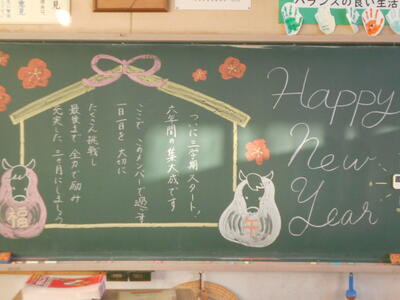 バランスの良い生活
ついに三学期スタート!
六年間の集大成です
ここで、このメンバーで過ごす
一日一日を大切に
たくさん挑戦し
最後まで全力で励み
充実した三ヶ月にしましょう
福
午
Happy
New
Year